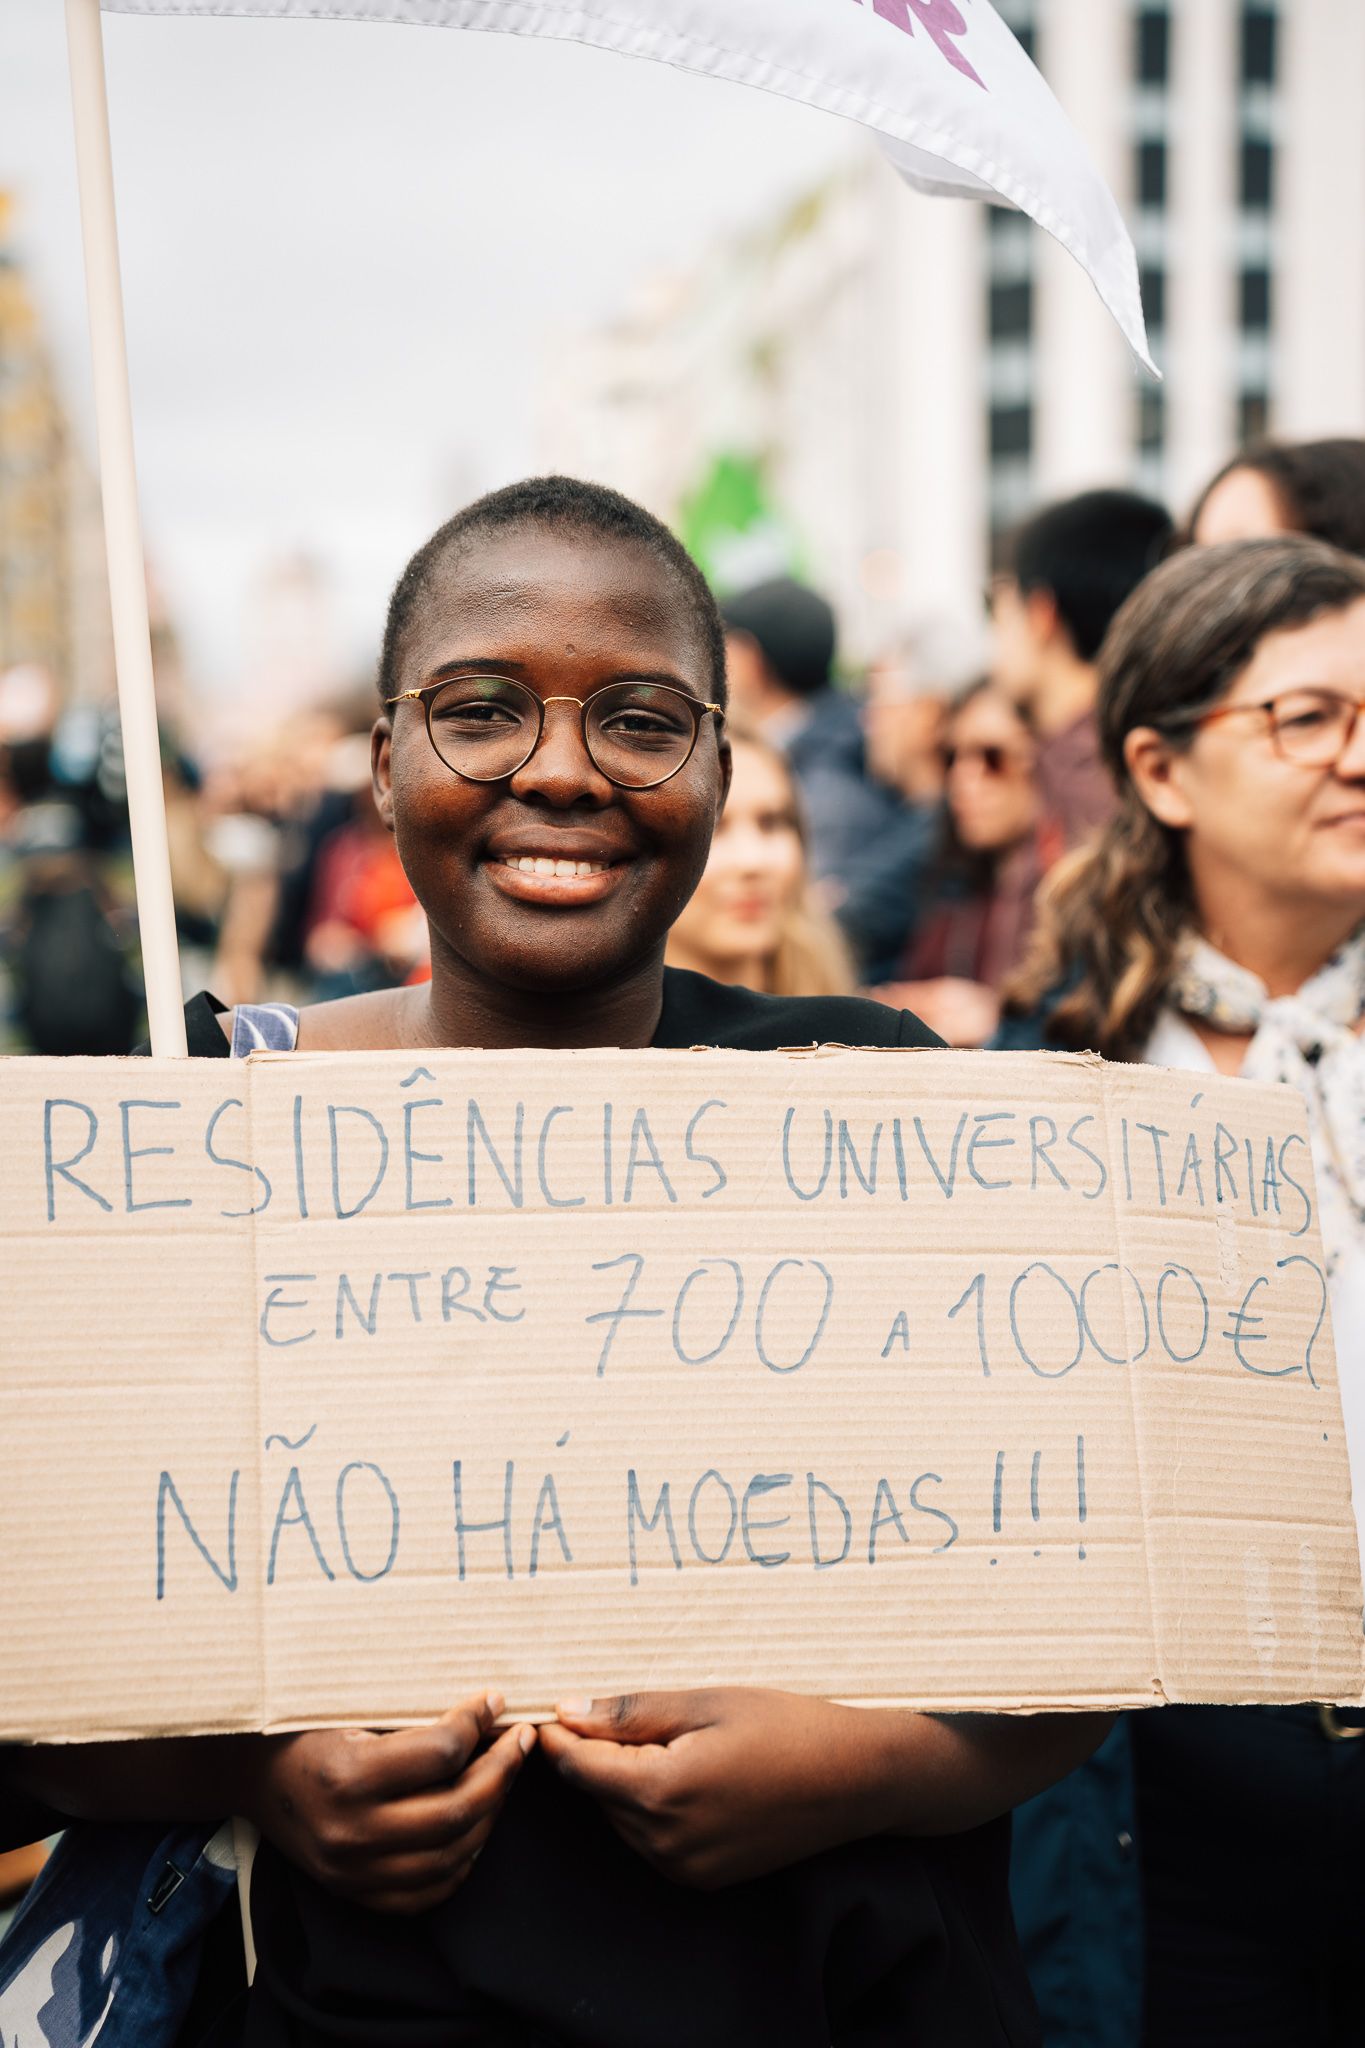 RESIDÊNCIAS UNIVERSITÁRIAS
ENTRE 700 A 1000€?
NÃO HÁ MOEDAS!!!